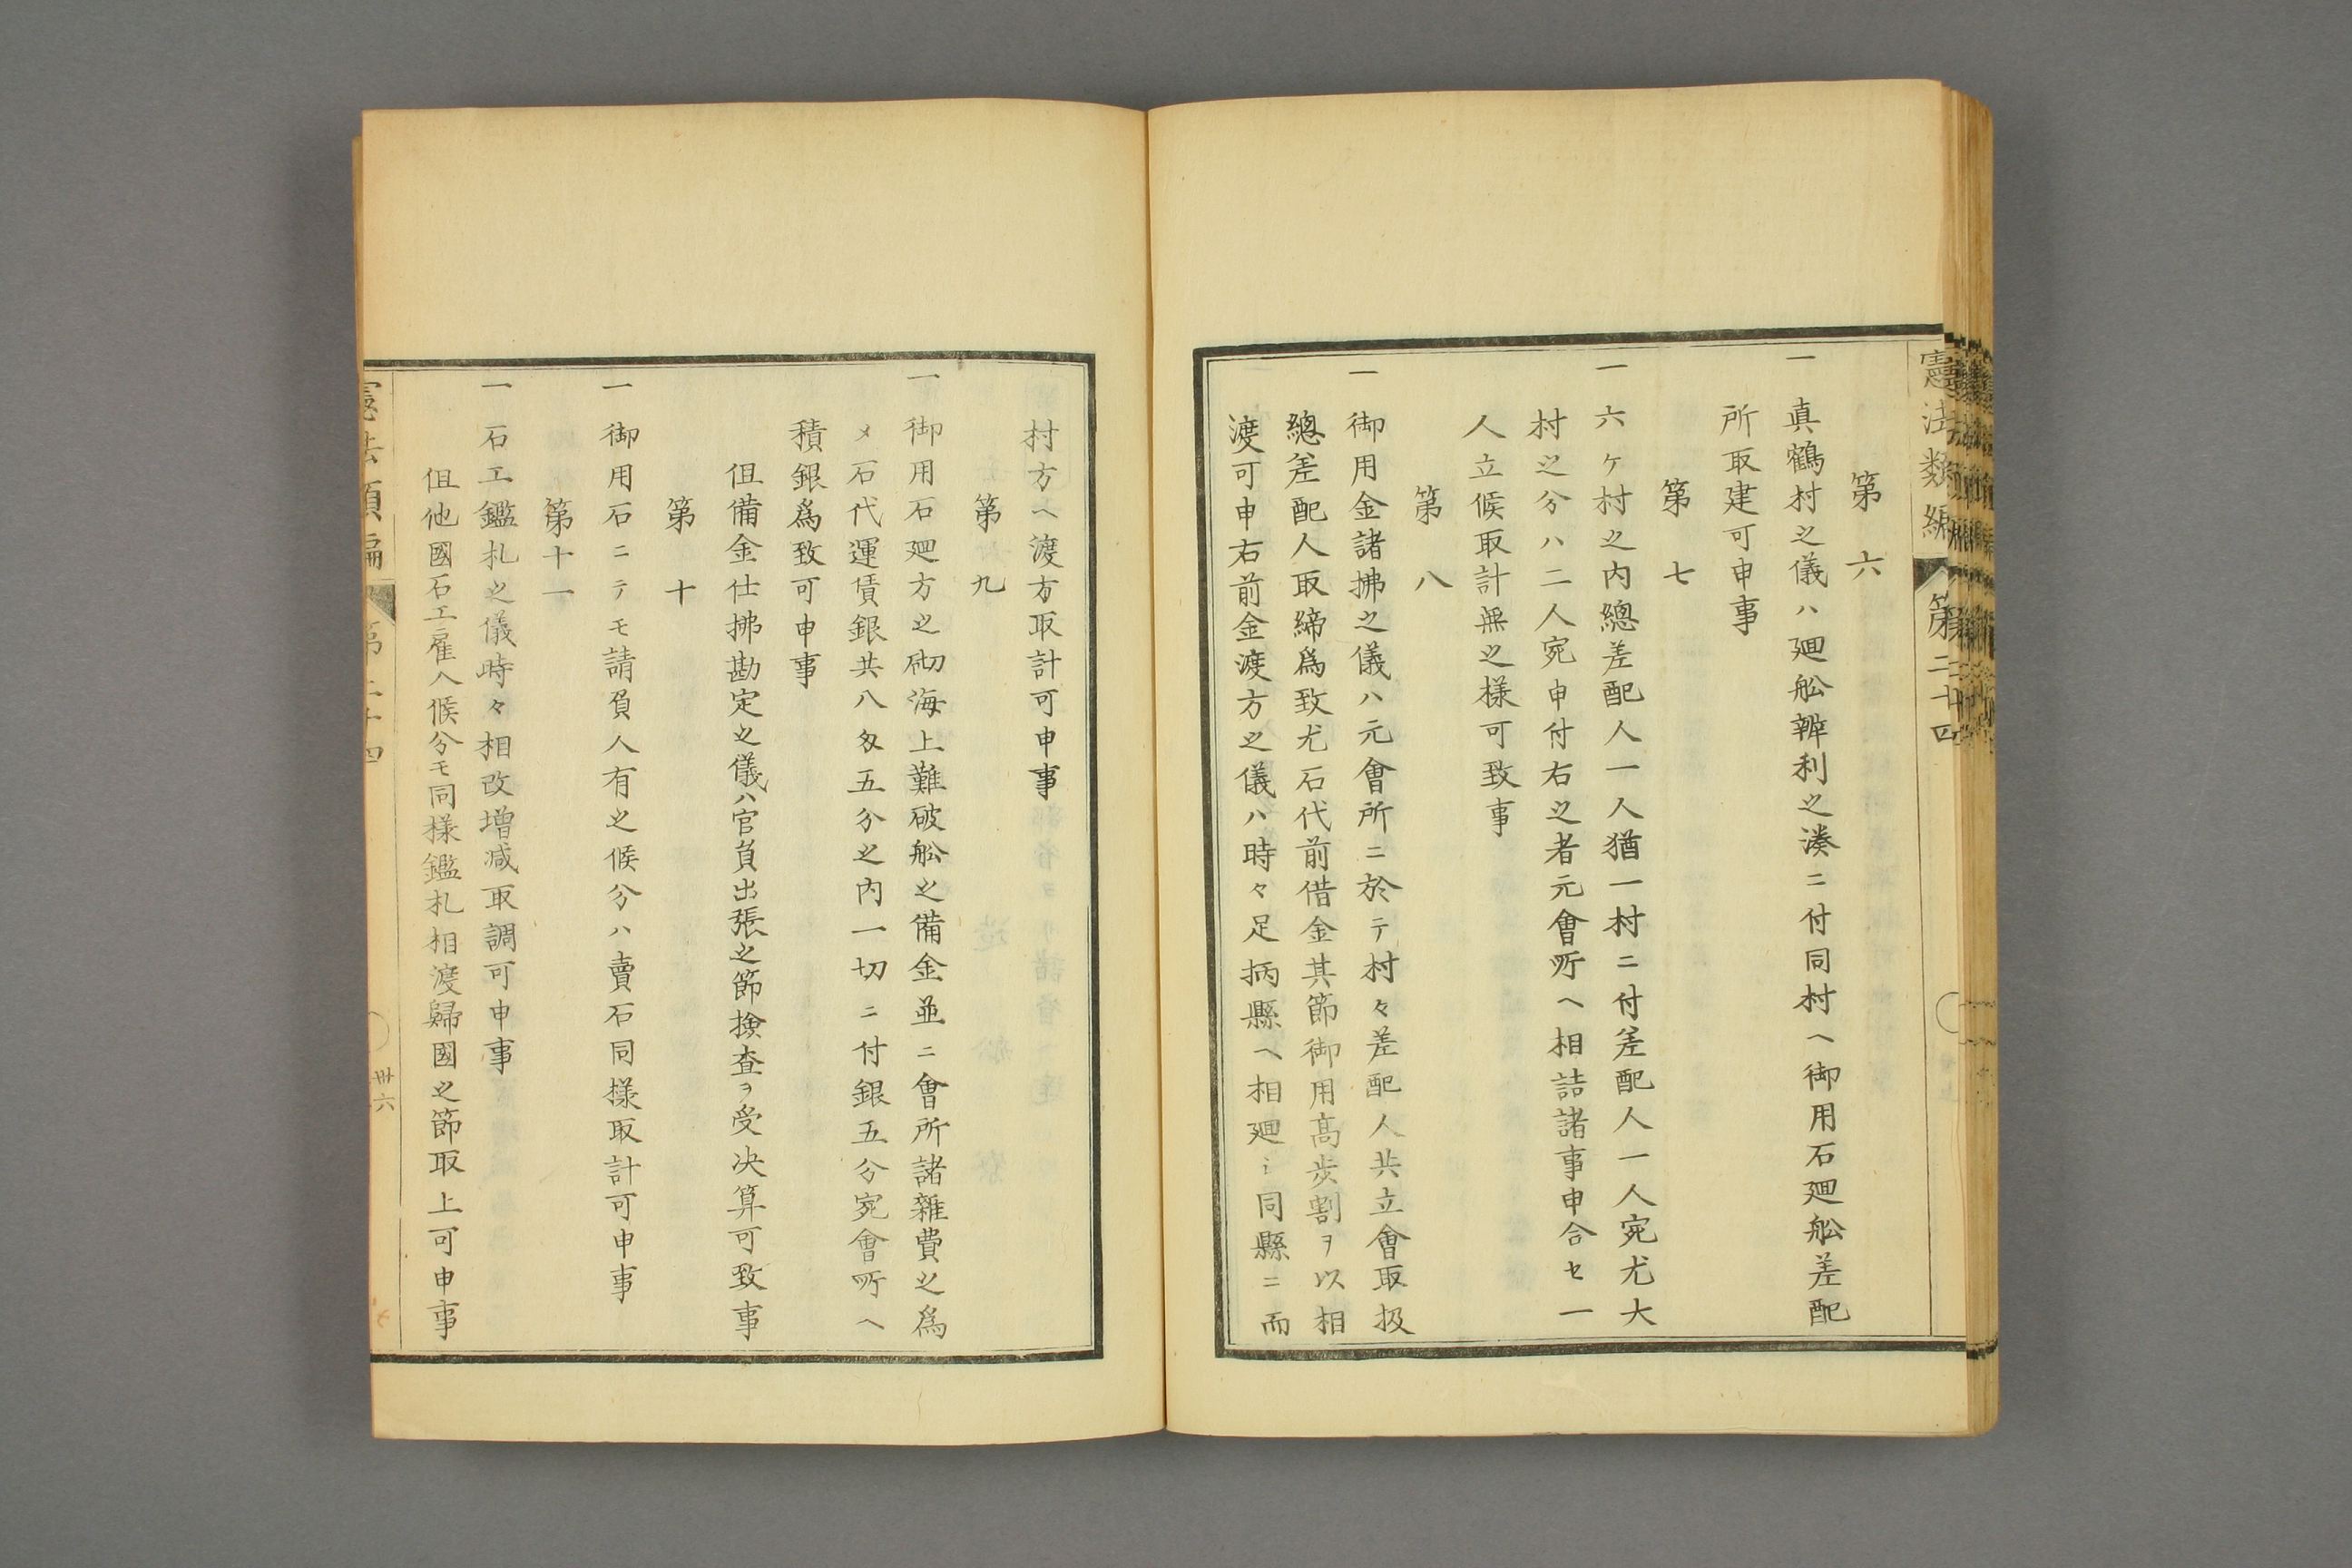 憲法類編
第二十四
第六
一真鶴村之儀ハ廻舩辨利之湊ニ付同村ヘ御用石廻舩差配
所取建可申事
第七
一六ケ村之内總差配人一人猶一村ニ付差配人一人宛尤大
村之分ハ二人宛申付右之者元會所ヘ相詰諸事申合セ一
人立候取計無之様可致事
第八
一御用金諸拂之儀ハ元會所ニ於テ村々差配人共立會取扱
總差配人取締爲致尤石代前借金其節御用高歩割ヲ以相
渡可申右前金渡方之儀ハ時々足柄縣ヘ相廻シ同縣ニ而
村方ヘ渡方取計可申事
第九
一御用石廻方之砌海上難破舩之備金並ニ會所諸雜費之爲
メ石代運賃銀共八匁五分之内一切ニ付銀五分宛會所ヘ
積銀爲致可申事
但備金仕拂勘定之儀ハ官員出張之節撿査ヲ受决算可致事
第十
一御用石ニテモ請負人有之候分ハ賣石同様取計可申事
第十一
一石工鑑札之儀時々相改增减取調可申事
但他國石工雇入候分モ同樣鑑札相渡歸國之節取上可申事
憲法類編
第二十四
卅六